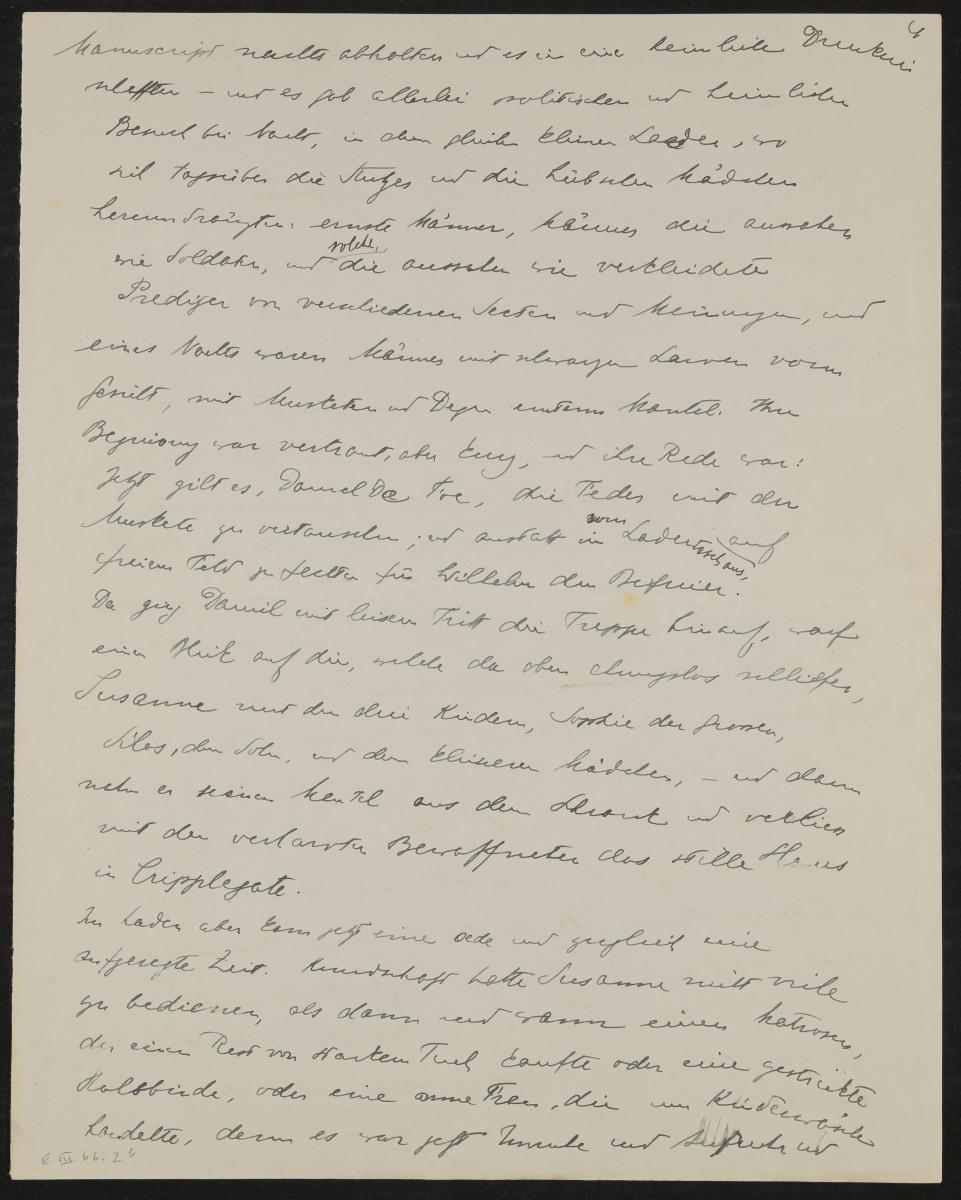 4
Manuscript nachts abholten und es in eine heimliche Druckerei
schleppten – und es gab allerlei politischen und heimlichen
Besuch bei Nacht, in dem gleichen kleinen Laden, wo
sich tagsüber die Stutzer und die hübschen Mädchen
herumdrängten: ernste Männer, Männer die aussahen
wie Soldaten, und solche, die aussahen wie verkleidete
Prediger von verschiedenen Secten und Meinungen, und
eines Nachts waren Männer mit schwarzen Larven vorm
Gesicht, mit Musketen und Degen unterm Mantel. Ihre
Begrüssung war vertraut, aber kurz, und ihre Rede war:
Jetzt gilt es, Daniel De Foe, die Feder mit der
Muskete zu vertauschen, und anstatt vom Ladentisch aus, auf
freiem Feld zu fechten für Wilhelm den Befreier.
Da ging Daniel mit leisem Tritt die Treppe hinauf, warf
einen Blick auf die, welche da oben ahnungslos schliefen,
Susanne mit den drei Kindern, Sophie der grossen,
dem Sohn, und dem kleineren Mädchen, – und dann
nahm er seinen Mantel aus dem Schrank und verliess
mit den verlarvten Bewaffneten das stille Haus
in Cripplegate.
Im Laden aber kam jetzt eine oede und zugleich eine
aufgeregte Zeit. Kundschaft hatte Susanne nicht viele
zu bedienen, als dann und wann einen Matrosen,
der einen Rest von starkem Tuch kaufte oder eine gestrickte
Halsbinde, oder eine arme Frau, die um Kinderwäsche
handelte, denn es war jetzt Unruhe und Aufruhr und
E III 66.26